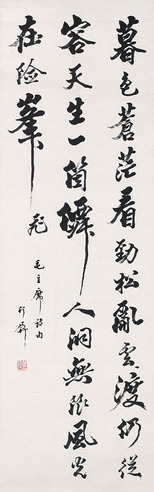 暮色蒼茫看勁松亂雲渡仍從
容天生一箇僊人洞無限風光
在險峯 飛
毛主席詩句
行嚴